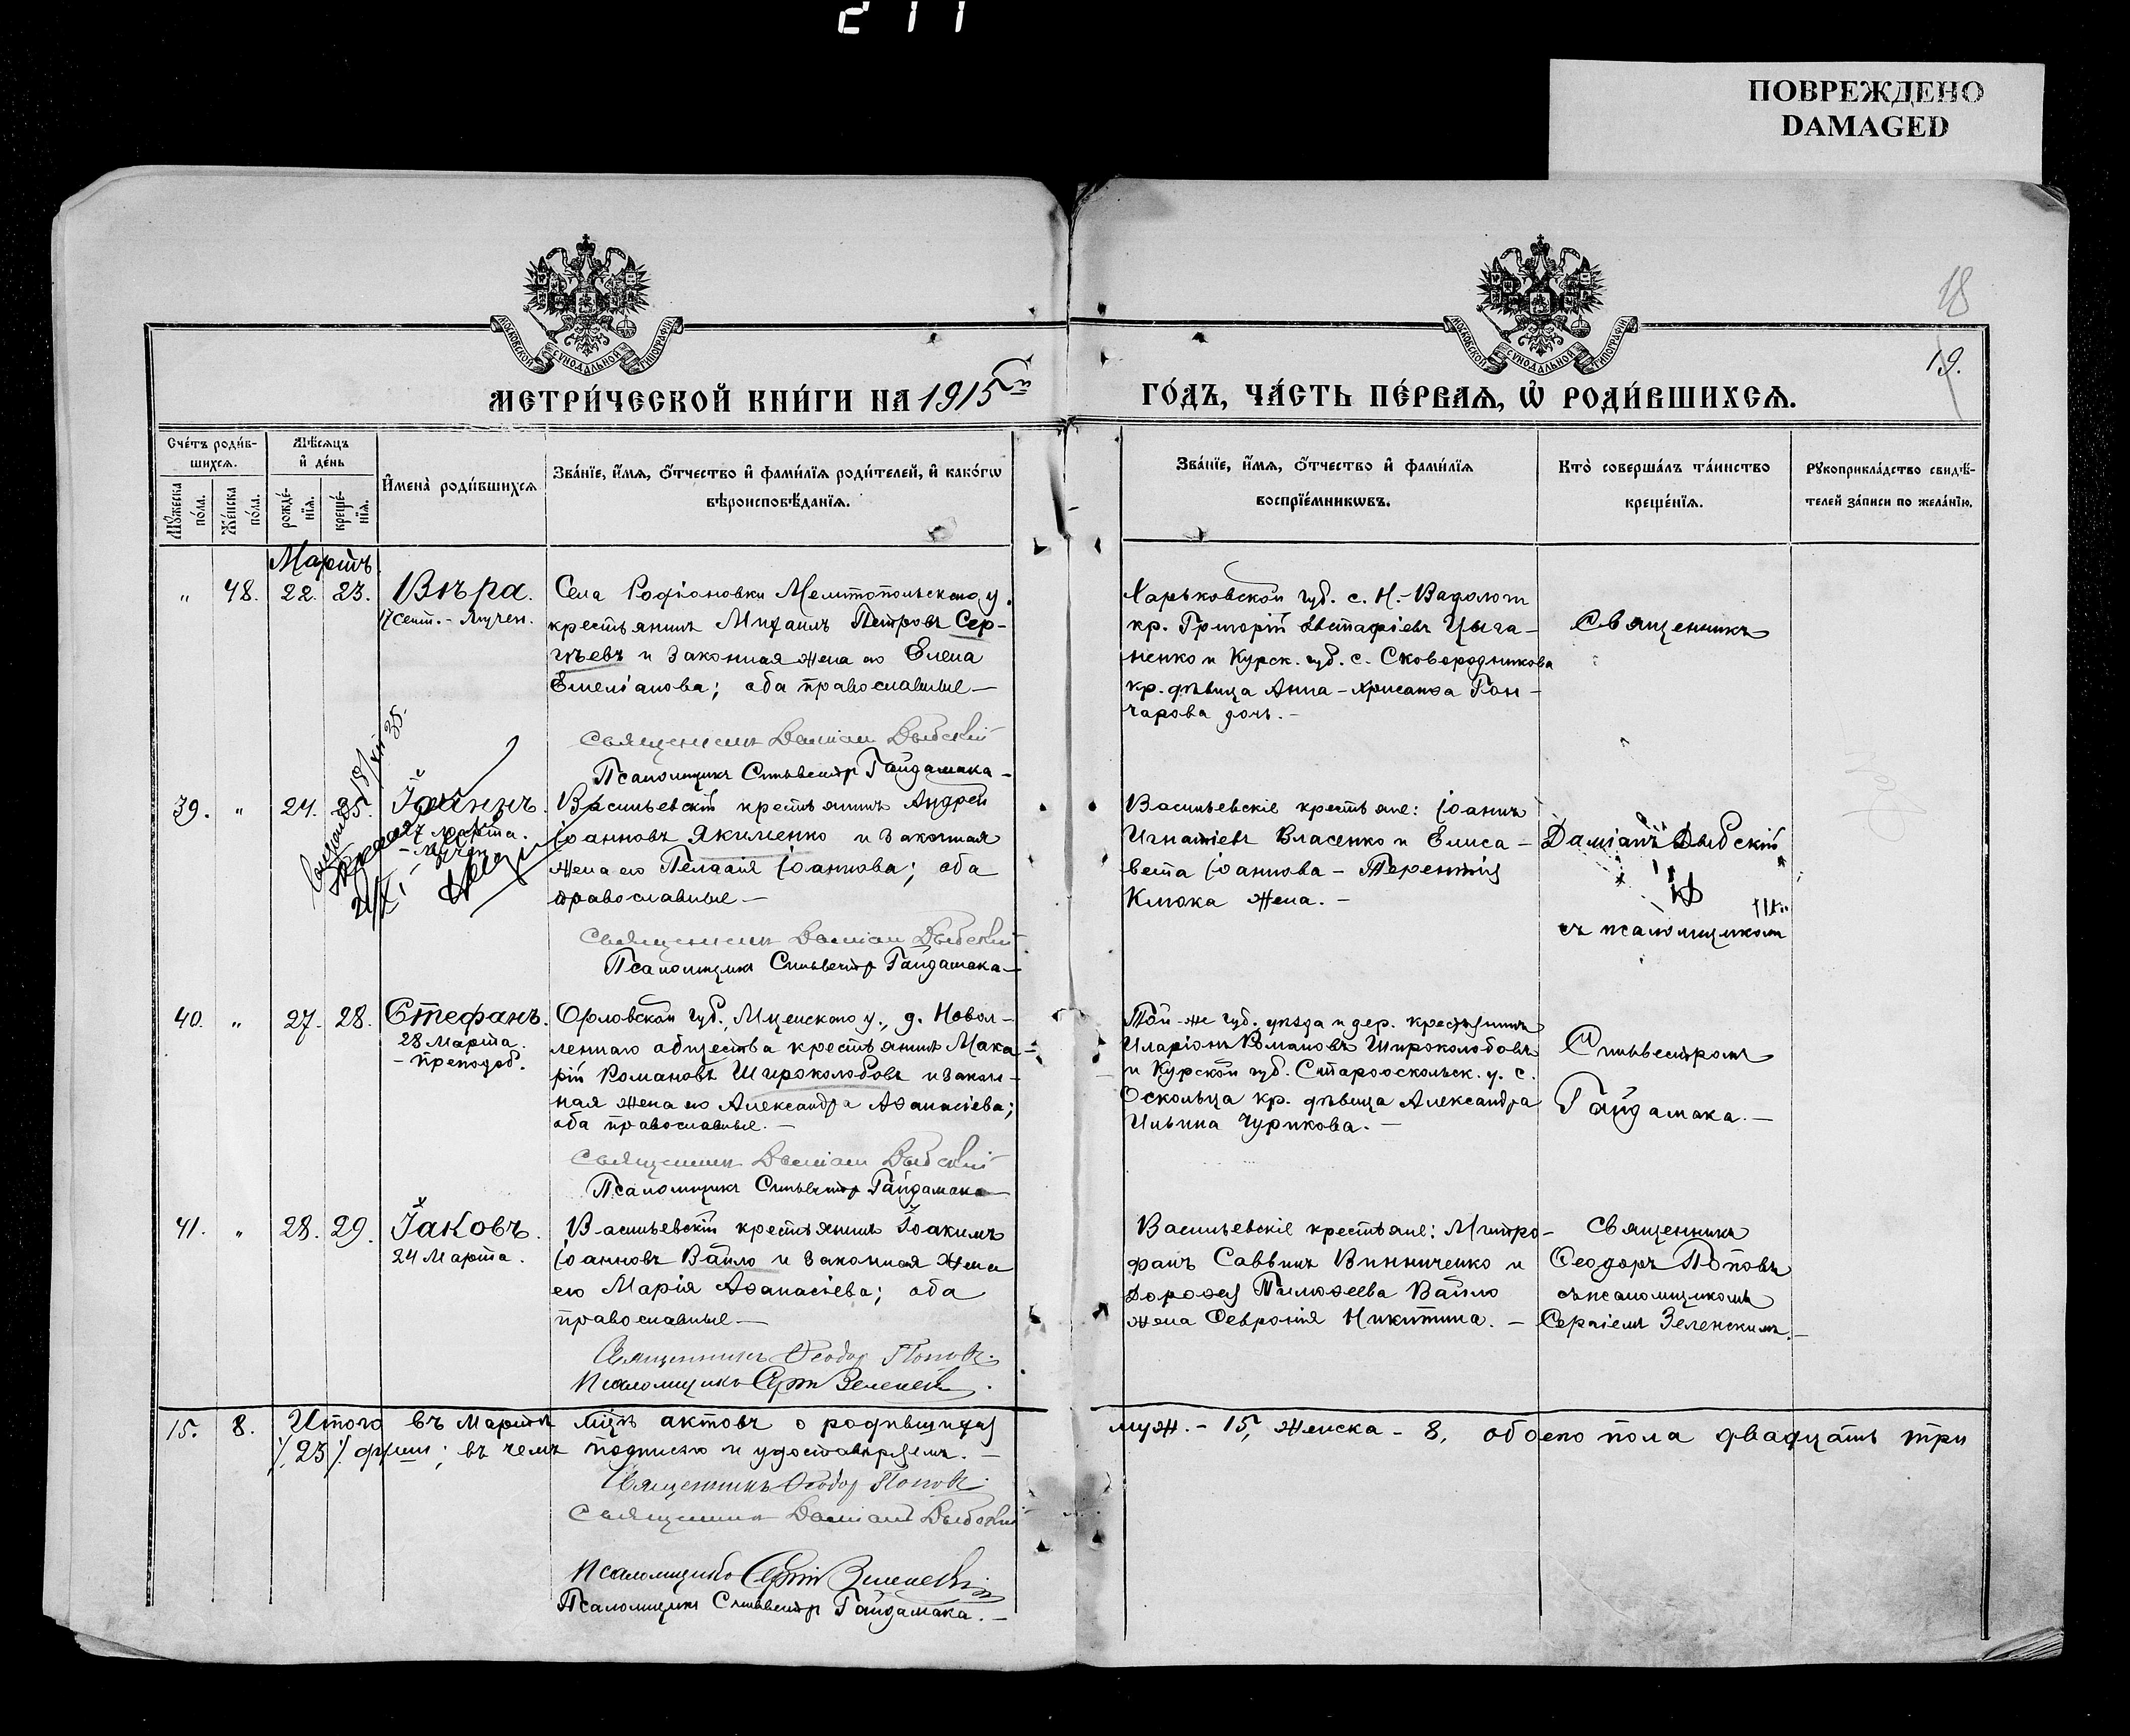 211
ПОВРЕЖДЕНО
DAMAGED
18
19.
МОСКОВСКОЙ СѴНОДАЛЬНОЙ ТИПОГРАФІИ
МОСКОВСКОЙ СѴНОДАЛЬНОЙ ТИПОГРАФІИ
МЕТРИ́ЧЕСКОЙ КНИ́ГИ НА 1915й
ГО́ДЪ, ЧА́СТЬ ПЕ́РВАѦ, Ѡ РОДИ́ВШИХСѦ.
Сче́тъ роди́в-
шихсѧ.
Мꙋ́жеска по́ла.
Же́нска по́ла.
Мѣ́сѧцъ
и де́нь
рожде́-
нїѧ.
креще́-
нїѧ.
И҆мена̀ роди́вшихсѧ
Зва́нїе, и҆́мѧ, ѻ҆́тчество и҆ фами́лїѧ роди́телей, и҆ како́гѡ
вѣроисповѣ́данїѧ.
Зва́нїе, и҆́мѧ, ѻ҆́тчество и҆ фами́лїѧ
воспрїе́мникѡвъ.
Кто̀ соверша́лъ та́инство
креще́нїѧ.
Рꙋкоприкла́дство свидѣ́-
телей за́писи по жела́нїю.
Мартъ
" 48. 22. 23. Вѣра.
17 Сент. - Мучен.
Села Родіоновки Мелитопольскаго у.
крестьянинъ Михаилъ Петровъ Сер-
гѣевъ и законная жена его Елена
Емеліанова; оба православные —
Священникъ Даміан Дыбскій
Псаломщикъ Сильвестр Гайдамака —
Харьковской губ. с. Н.-Водолаги
кр. Григорій Евстафіевъ Цыга-
ненко и Курск. губ. с. Сковородникова
кр. дѣвица Анна - Хрисанѳа Гон-
чарова дочь. —
Священникъ
39. " 24. 25. Іоаннъ.
27 Марта.
- Мучен.
Васильевскій крестьянинъ Андрей
Іоанновъ Якименко и законная
жена его Пелагія Іоаннова; оба
православные —
Священникъ Даміан Дыбскій
Псаломщикъ Сильвестр Гайдамака —
Васильевскіе крестьяне: Іоаннъ
Игнатіевъ Власенко и Елиса-
вета Іоаннова - Терентія
Клюка жена. —
Даміанъ Дыбскій
съ псаломщикомъ
40. " 27. 28. Стефанъ.
28 Марта.
- преподоб.
Орловской губ., Мценскаго у., д.
общества крестьянинъ Мака-
рій Романовъ Широколобовъ и закон-
ная жена его Александра Аѳанасіева;
оба православные. —
Священникъ Даміан Дыбскій
Псаломщикъ Сильвестр Гайдамака —
Той-же губ. уѣзда и дер. крестьянинъ
Иларіонъ Романовъ Широколобовъ
и Курской губ. Старооскольск. у. с.
Оскольца кр. дѣвица Александра
Ильина Чурикова. —
Сильвестромъ
Гайдамака. —
41. " 28. 29. Іаковъ.
24 Марта.
Васильевскій крестьянинъ Іоакимъ
Іоанновъ Вайло и законная жена
его Марія Аѳанасіева; оба
православные —
Священникъ Ѳеодор Поповъ.
Псаломщикъ Сергій Зеленскій.
Васильевскіе крестьяне: Митро-
фанъ Саввинъ Винниченко и
Дороѳея Тимоѳеева Вайло
жена Ѳевронія Никитина. —
Священникъ
Ѳеодоръ Поповъ
съ псаломщикомъ
Сергіемъ Зеленскимъ. —
15. 8. Итого въ Мартѣ мцѣ актовъ о родившихся
муж. - 15, женска - 8, обоего пола двадцать три
/. 23 /. души; въ чемъ подписью и удостовѣряемъ. —
Священникъ Ѳеодор Поповъ
Священникъ Даміанъ Дыбскій
Псаломщикъ Сергій Зеленскій
Псаломщикъ Сильвестр Гайдамака. —